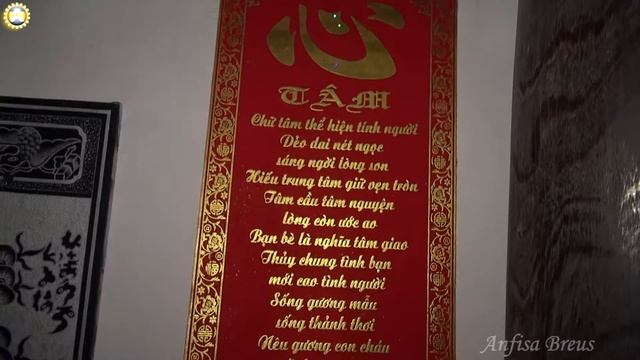 心
TÂM
Chữ tâm thể hiện tính người
Dẻo dai nét ngọc
sáng ngời lòng son
Hiếu trung tâm giữ vẹn tròn
Tâm cầu tâm nguyện
lòng còn ước ao
Bạn bè là nghĩa tâm giao
Thủy chung tình bạn
mới cao tình người
Sống gương mẫu
sống thảnh thơi
Nêu gương con cháu
Anfisa Breus